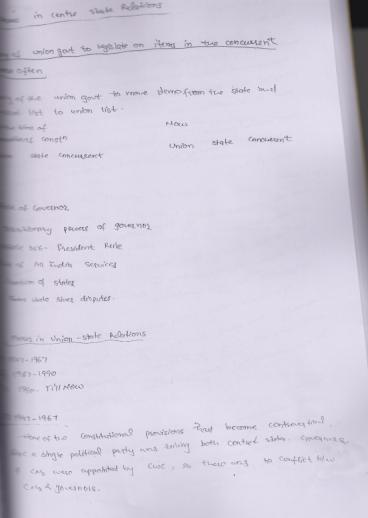 in centre state Relations
of union govt to legislate on items in the concurrent
often
of the union govt to move items from the state and
list to union list.
time of Now
constn Union state concurrent
state concurrent
of Governor
Discretionary powers of governor
356- President Rule
of All India Services
of states
state river disputes.
in Union-state Relations
1947-1967
1967-1990
1990- Till Now
1947-1967
None of the constitutional provisions had become controversial.
a single political party was ruling both centre & state. Governors
& CMs were appointed by CWC, so there was no conflict b/w
CMs & governors.